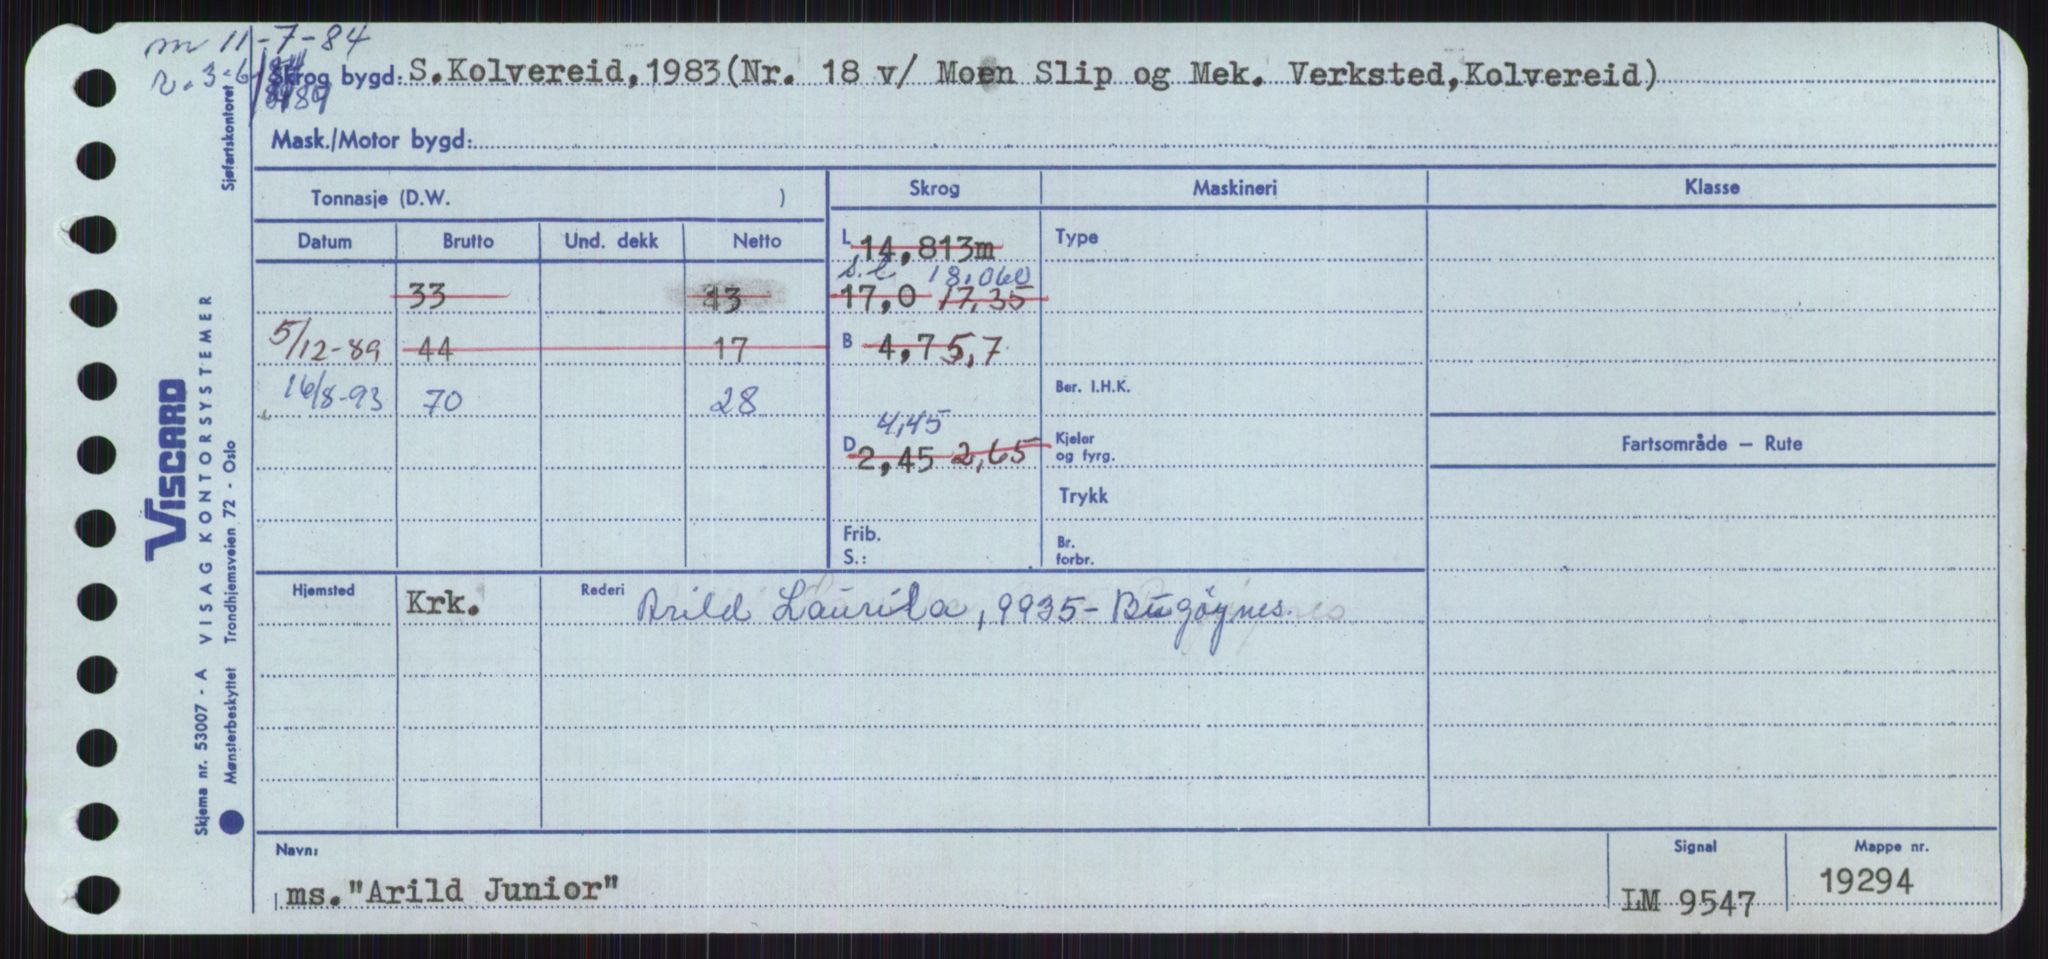 m 11-7-84
Skrog bygd: S.Kolvereid, 1983(Nr. 18 v/ Moen Slip og Mek. Verksted, Kolvereid)
Mask./Motor bygd:
Sjøfartskontoret
Tonnasje (D.W. )
Skrog
Maskineri
Klasse
Datum
Brutto
Und. dekk
Netto
L 14,813m
Type
33
13
s.l 18.060
17,0 17,35
5/12-89
44
17
B 4,7 5,7
16/8-93
70
28
Ber. I.H.K.
4,45
D 2,45 2,65
Kjeler
og fyrg.
Fartsområde — Rute
Trykk
Frib.
S.:
Br.
forbr.
Hjemsted
Krk.
Rederi
Arild Laurila, 9935- Bugöynes.
VISCARD
Skjema nr. 53007 - A VISAG KONTORSYSTEMER
Mønsterbeskyttet Trondhjemsveien 72 - Oslo
Navn:
ms. "Arild Junior"
Signal
LM 9547
Mappe nr.
19294